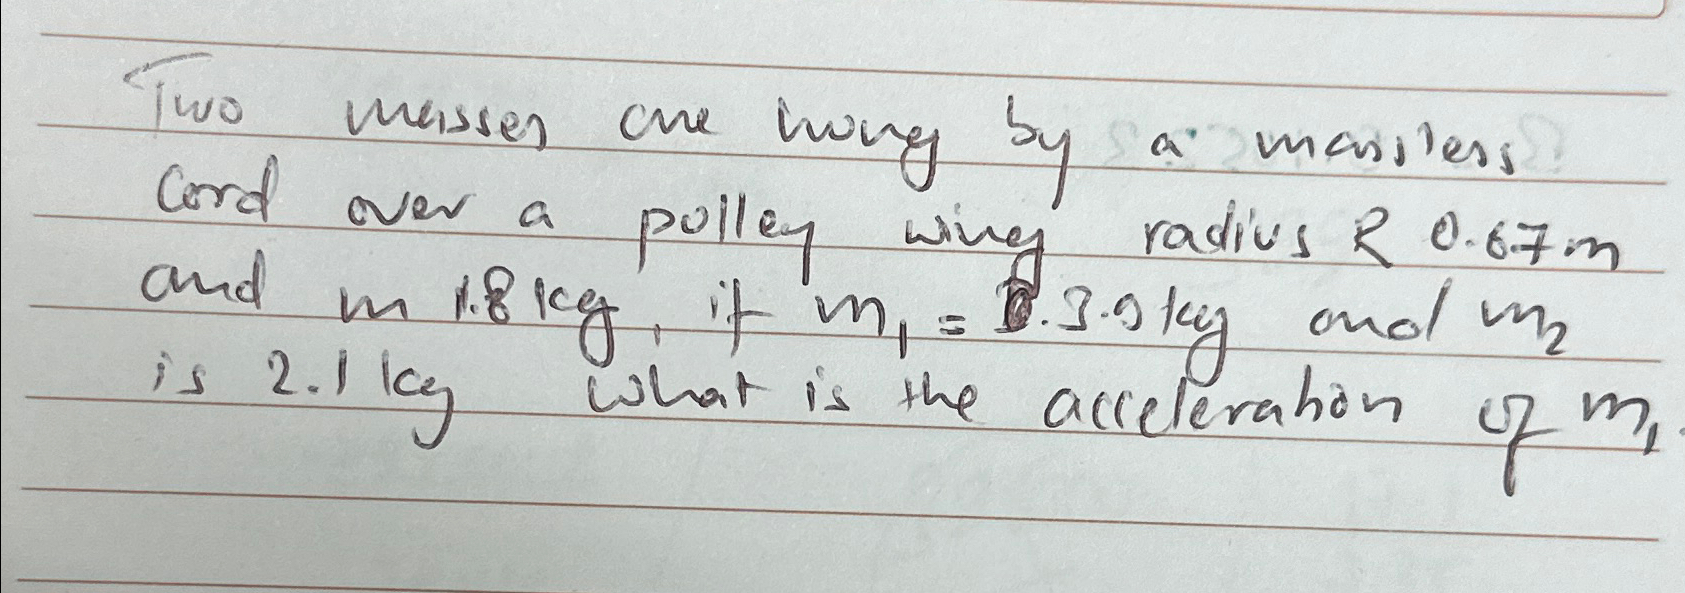 Two masses are hung by a massless
Cord over a pulley wing radius R 0.67m
and m 1.8 kg, if m₁ = 3.9 kg and m₂
is 2.1 kg What is the acceleration of m₁.